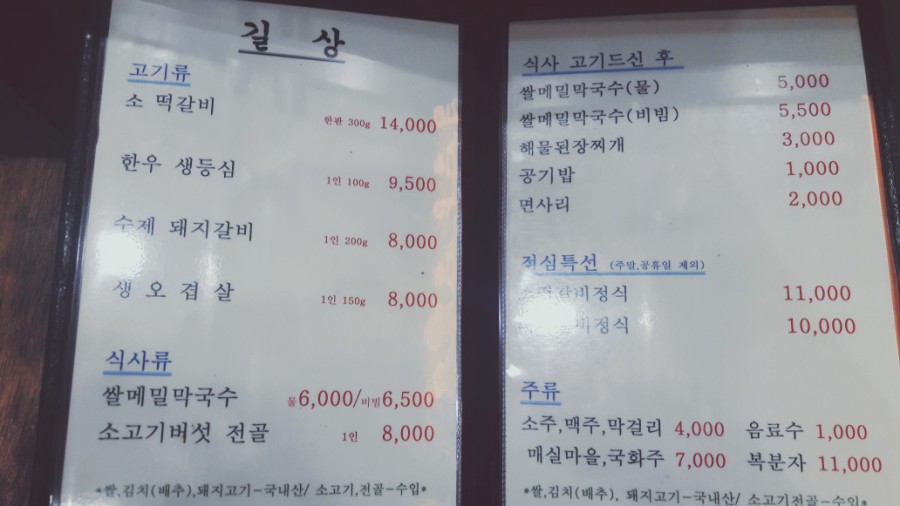 길 상
고기류
소 떡갈비 한판 300g 14,000
한우 생등심 1인 100g 9,500
수제 돼지갈비 1인 200g 8,000
생 오 겹 살 1인 150g 8,000
식사류
쌀메밀막국수 물6,000/비빔6,500
소고기버섯 전골 1인 8,000
*쌀,김치(배추),돼지고기-국내산/ 소고기,전골-수입*
식사 고기드신 후
쌀메밀막국수(물) 5,000
쌀메밀막국수(비빔) 5,500
해물된장찌개 3,000
공기밥 1,000
면사리 2,000
점심특선 (주말,공휴일 제외)
11,000
10,000
주류
소주,맥주,막걸리 4,000 음료수 1,000
매실마을,국화주 7,000 복분자 11,000
*쌀,김치(배추), 돼지고기-국내산/ 소고기전골-수입*